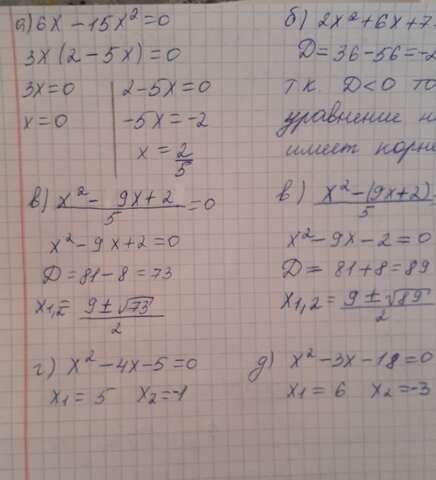 а) 6x - 15x² = 0
3x(2 - 5x) = 0
3x = 0
x = 0
2 - 5x = 0
-5x = -2
x = 2/5
б) 2x² + 6x + 7
D = 36 - 56 = -2
т к D < 0 то
уравнение н
имеет корне
в) (x² - 9x + 2)/5 = 0
x² - 9x + 2 = 0
D = 81 - 8 = 73
x₁,₂ = (9 ± √73)/2
в) (x² - (9x + 2))/5 =
x² - 9x - 2 = 0
D = 81 + 8 = 89
x₁,₂ = (9 ± √89)/2
г) x² - 4x - 5 = 0
x₁ = 5 x₂ = -1
д) x² - 3x - 18 = 0
x₁ = 6 x₂ = -3